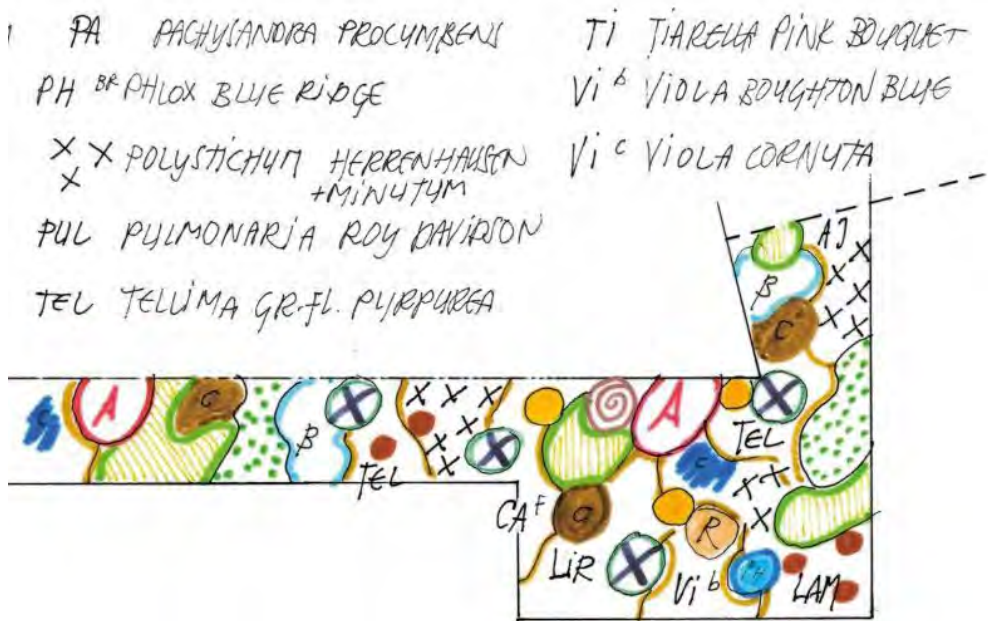 PA PACHYSANDRA PROCUMBENS
PH BR PHLOX BLUE RIDGE
X X X POLYSTICHUM HERRENHAUSEN
+MINUTUM
PUL PULMONARIA ROY DAVIDSON
TEL TELLIMA GR.FL. PURPUREA
Ti TIARELLA PINK BOUQUET
Vi b VIOLA BOUGHTON BLUE
Vi c VIOLA CORNUTA
AJ
B
C
A
C
B
TEL
A
TEL
C
CA F
C
R
LiR
Vi b
PH
LAM